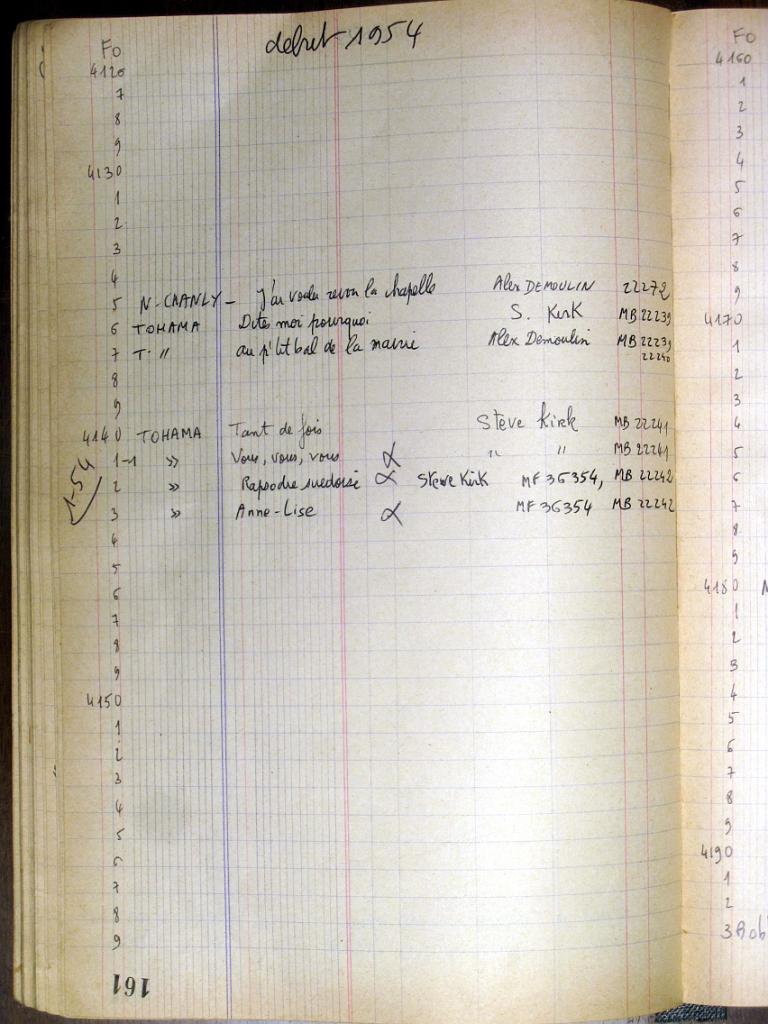 debut 1954
Fo
4126
7
8
9
4130
1
2
3
4
5 N-CHANLY - J'ai voulu revoir la chapelle Alex DEMOULIN 22272
6 TOHAMA Dites moi pourquoi S. Kirk MB 22239
7 T. " au p'tit bal de la mairie Alex Demoulin MB 22239
22240
8
9
4140 TOHAMA Tant de fois Steve Kirk MB 22241
1-1 » Vous, vous, vous α " " MB 22241
1-54
2 » Rapsodie suedoise α Steve Kirk MF 36354, MB 22242
3 » Anne-Lise α MF 36354 MB 22242
4
5
6
7
8
9
4150
1
2
3
4
5
6
7
8
9
161
Fo
4160
1
2
3
4
5
6
7
8
9
4170
1
2
3
4
5
6
7
8
9
4180
1
2
3
4
5
6
7
8
9
4190
1
2
3 Rob